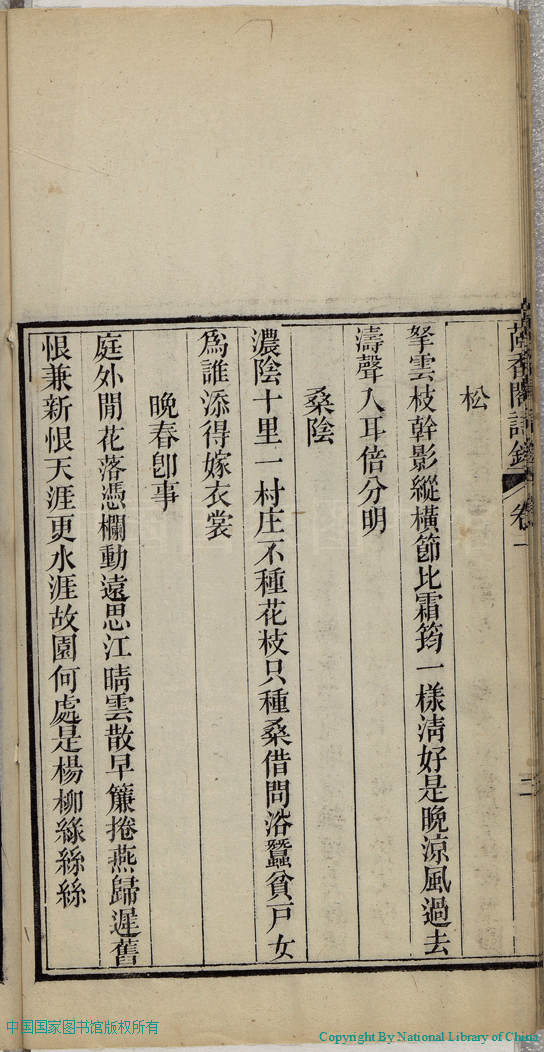 香閣詩錄 卷一
三
松
拏雲枝幹影縱橫節比霜筠一樣淸好是晚涼風過去
濤聲入耳倍分明
桑陰
濃陰十里一村庄不種花枝只種桑借問浴蠶貧戸女
爲誰添得嫁衣裳
晚春卽事
庭外閒花落憑欄動遠思江晴雲散早簾捲燕歸遲舊
恨兼新恨天涯更水涯故園何處是楊柳綠絲絲
中国国家图书馆版权所有
Copyright By National Library of China